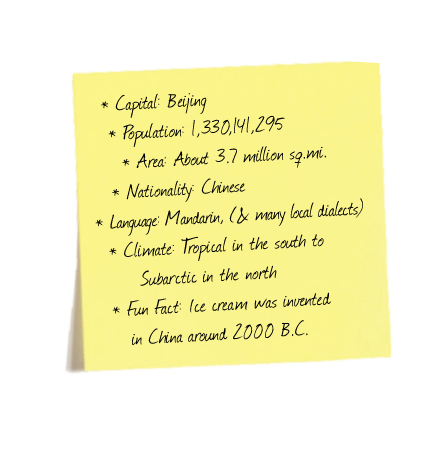 * Capital: Beijing
* Population: 1,330,141,295
* Area: About 3.7 million sq.mi.
* Nationality: Chinese
* Language: Mandarin, (& many local dialects)
* Climate: Tropical in the south to
Subarctic in the north
* Fun Fact: Ice cream was invented
in China around 2000 B.C.